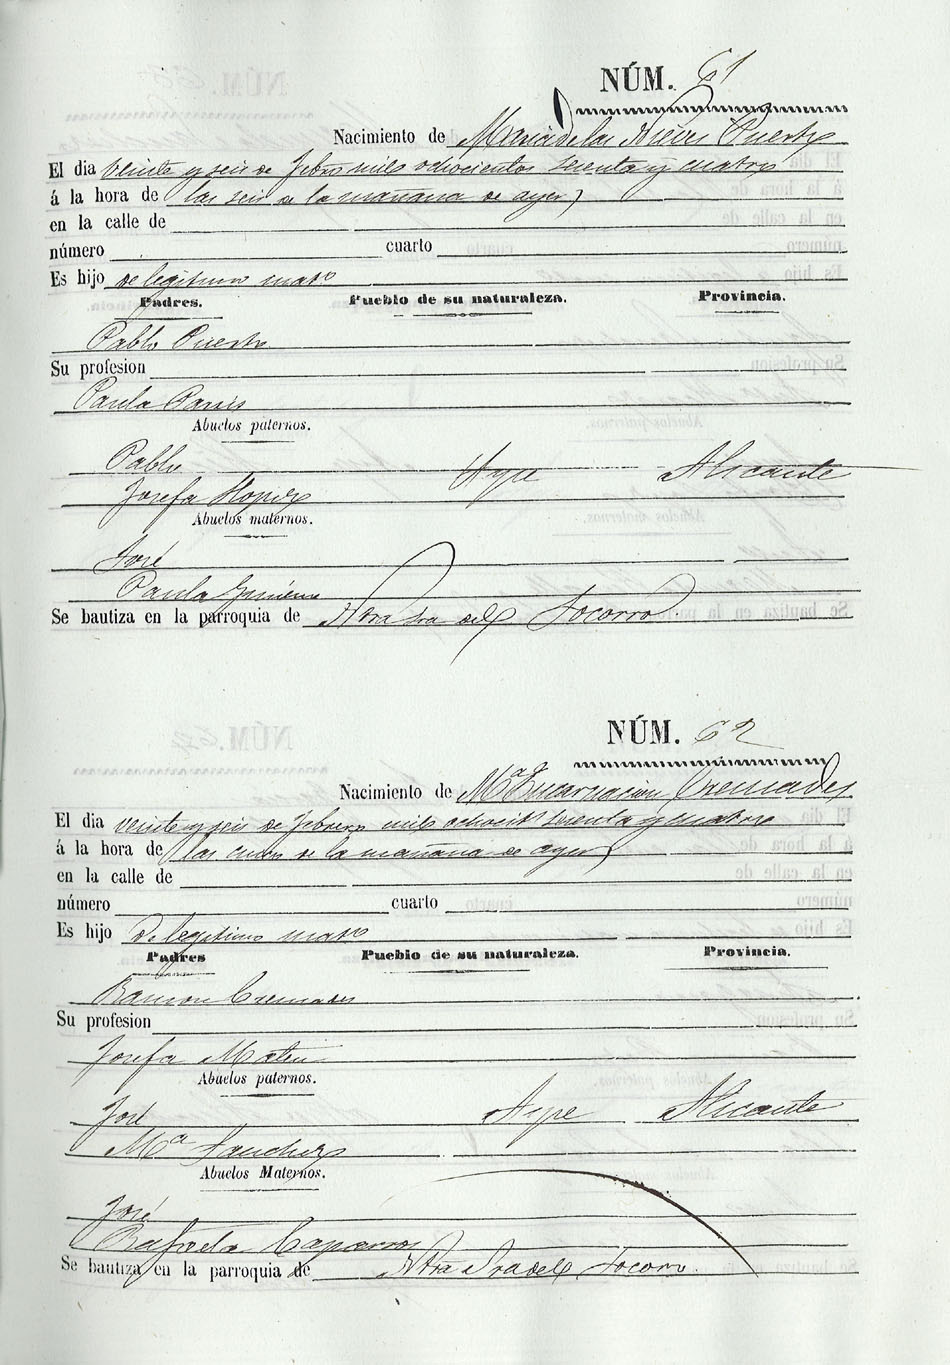 NÚM. 61
Nacimiento de Maria de las Nieves Puerto
El dia veinte y seis de Febro mil ochocientos setenta y cuatro
á la hora de las seis de la mañana de ayer)
en la calle de
número cuarto
Es hijo de legitimo mato
Padres. Pueblo de su naturaleza. Provincia.
Pablo Puerto
Su profesion
Paula
Abuelos paternos.
Pablo Aspe Alicante
Josefa
Abuelos maternos.
José
Paula
Se bautiza en la parroquia de Ntra Sra del Socorro
NÚM. 62
Nacimiento de Mª Encarnacion Cremades
El dia veinte y seis de febrero mil setenta y cuatro
á la hora de las cinco de la mañana de ayer)
en la calle de
número cuarto
Es hijo de legitimo mato
Padres Pueblo de su naturaleza. Provincia.
Ramon Cremades
Su profesion
Josefa Mateu
Abuelos paternos.
José Aspe Alicante
Mª Sanchez
Abuelos Maternos.
José
Rafaela Caparros
Se bautiza en la parroquia de Ntra Sra del Socorro